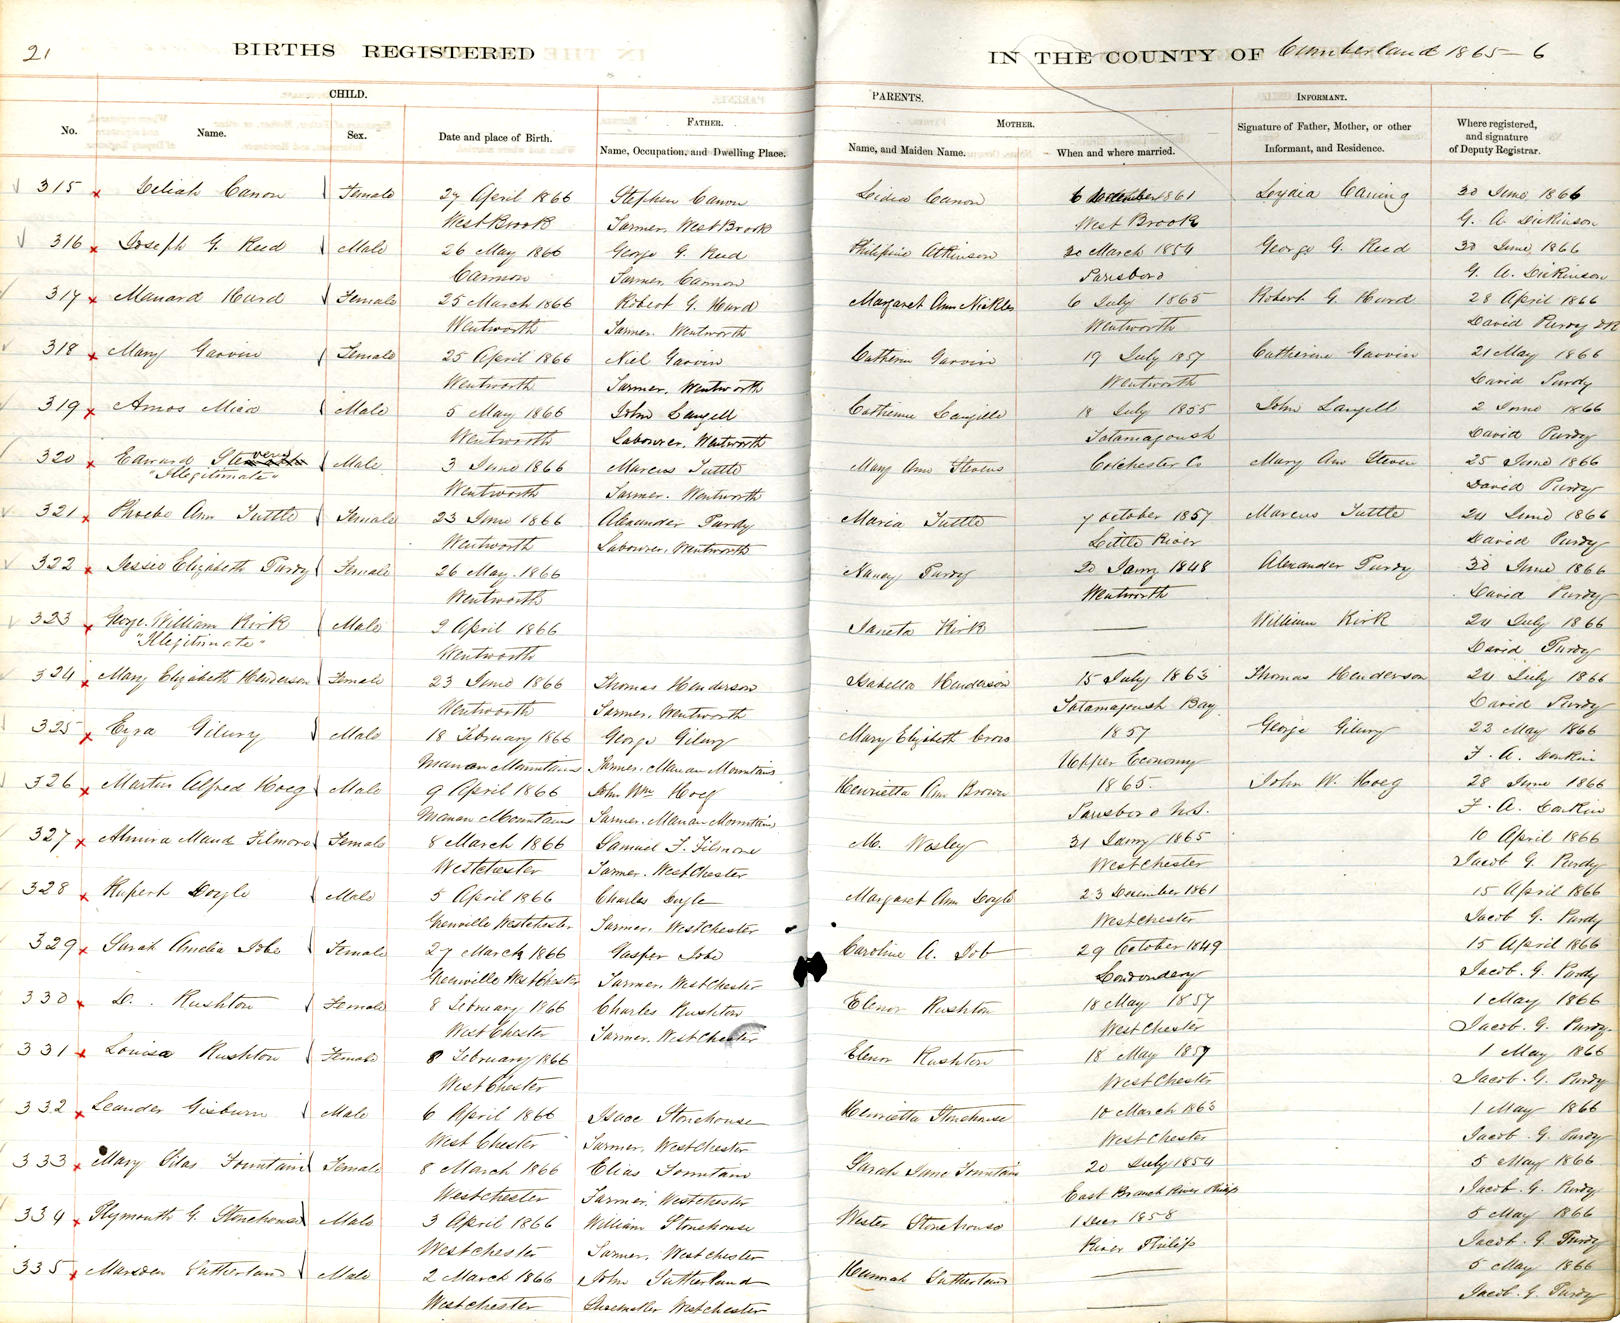 21
BIRTHS REGISTERED IN THE COUNTY OF Cumberland 1865-6
CHILD. PARENTS. INFORMANT.
No. Name. Sex. Date and place of Birth. FATHER. Name, Occupation, and Dwelling Place. MOTHER. Name, and Maiden Name. When and where married. Signature of Father, Mother, or other Informant, and Residence. Where registered, and signature of Deputy Registrar.
315 Liliah Canon Female 27 April 1866 Stephen Canon Lidia Canon 6 December 1861 Lydia Caning 30 June 1866
West Brook Farmer, West Brook West Brook G. A. Dickinson
316 Joseph G. Reed Male 26 May 1866 George G. Reed Philipine Atkinson 30 March 1854 George G. Reed 30 June 1866
Cannon Farmer Cannon Parsboro G. A. Dickinson
317 Manard Hurd Female 25 March 1866 Robert G. Hurd Margaret Ann Nickles 6 July 1865 Robert G. Hurd 28 April 1866
Wentworth Farmer. Wentworth Wentworth David Purdy DR
318 Mary Garvin Female 25 April 1866 Niel Garvin Catherine Garvin 19 July 1857 Catherine Garvin 21 May 1866
Wentworth Farmer. Wentworth Wentworth David Purdy
319 Amos Male 5 May 1866 John Langell Catherine Langille 18 July 1855 John Langell 2 June 1866
Wentworth Labourer, Wentworth Tatamagoush David Purdy
320 Edward Stevens Male 3 June 1866 Marcus Tuttle Mary Ann Stevens Colchester Co Mary Ann Steven 25 June 1866
"Illegitimate" Wentworth Farmer. Wentworth David Purdy
321 Phoebe Ann Tuttle Female 23 June 1866 Alexander Purdy Maria Tuttle 7 October 1857 Marcus Tuttle 24 June 1866
Wentworth Labourer, Wentworth Little River David Purdy
322 Jessie Elizabeth Purdy Female 26 May. 1866 Nancy Purdy 20 Jany 1848 Alexander Purdy 30 June 1866
Wentworth Wentworth David Purdy
323 George William Kirk Male 2 April 1866 Janeta Kirk — William Kirk 24 July 1866
"Illegitimate" Wentworth David Purdy
324 Mary Elizabeth Henderson Female 23 June 1866 Thomas Henderson Isabella Henderson 15 July 1863 Thomas Henderson 24 July 1866
Wentworth Farmer, Wentworth Tatamagoush Bay David Purdy
325 Ezra Gilury Male 18 February 1866 George Gilury Mary Elizabeth Cross 1857 George Gilury 22 May 1866
Manan Mountains Farmer. Manan Mountains Upper Economy F. A.
326 Martin Alfred Hoeg Male 9 April 1866 John Wm Hoeg Henrietta Ann Brown 1865. John W. Hoeg 28 June 1866
Manan Mountains Farmer. Manan Mountains Parsboro N.S. F. A.
327 Almira Maud Filmore Female 8 March 1866 Samuel T. Filmore M. Wosley 31 Jany 1865 10 April 1866
Westchester Farmer. Westchester Westchester Jacob G. Purdy
328 Rupert Doyle Male 5 April 1866 Charles Doyle Margaret Ann Doyle 23 December 1861 15 April 1866
Grenville Westchester Farmer. Westchester Westchester Jacob G. Purdy
329 Sarah Amelia Jobe Female 27 March 1866 Gasper Jobe Caroline A. Job 29 October 1849 15 April 1866
Greenville Westchester Farmer. Westchester Londondery Jacob. G. Purdy
330 D. Rushton Female 8 February 1866 Charles Rushton Elenor Rushton 18 May 1857 1 May 1866
West Chester Farmer. Westchester Westchester Jacob. G. Purdy.
331 Louisa Rushton Female 8 February 1866 Elenor Rushton 18 May 1857 1 May 1866
West Chester West Chester Jacob. G. Purdy
332 Leander Gisburn Male 6 April 1866 Isaac Stonehouse Henrietta Stonehouse 10 March 1863 1 May 1866
West Chester Farmer. Westchester Westchester Jacob G. Purdy
333 Mary Silas Fountain Female 8 March 1866 Elias Fountain Sarah Jane Fountain 20 July 1854 5 May 1866
Westchester Farmer. Westchester East Branch River Philip Jacob. G. Purdy
334 Plymouth G. Stonehouse Male 3 April 1866 William Stonehouse Wester Stonehouse 1 Decr 1858 5 May 1866
Westchester Farmer. Westchester River Philip Jacob G. Purdy
335 Marsden Sutherland Male 2 March 1866 John Sutherland Hannah Sutherland — 5 May 1866
Westchester Shoemaker Westchester — Jacob. G. Purdy